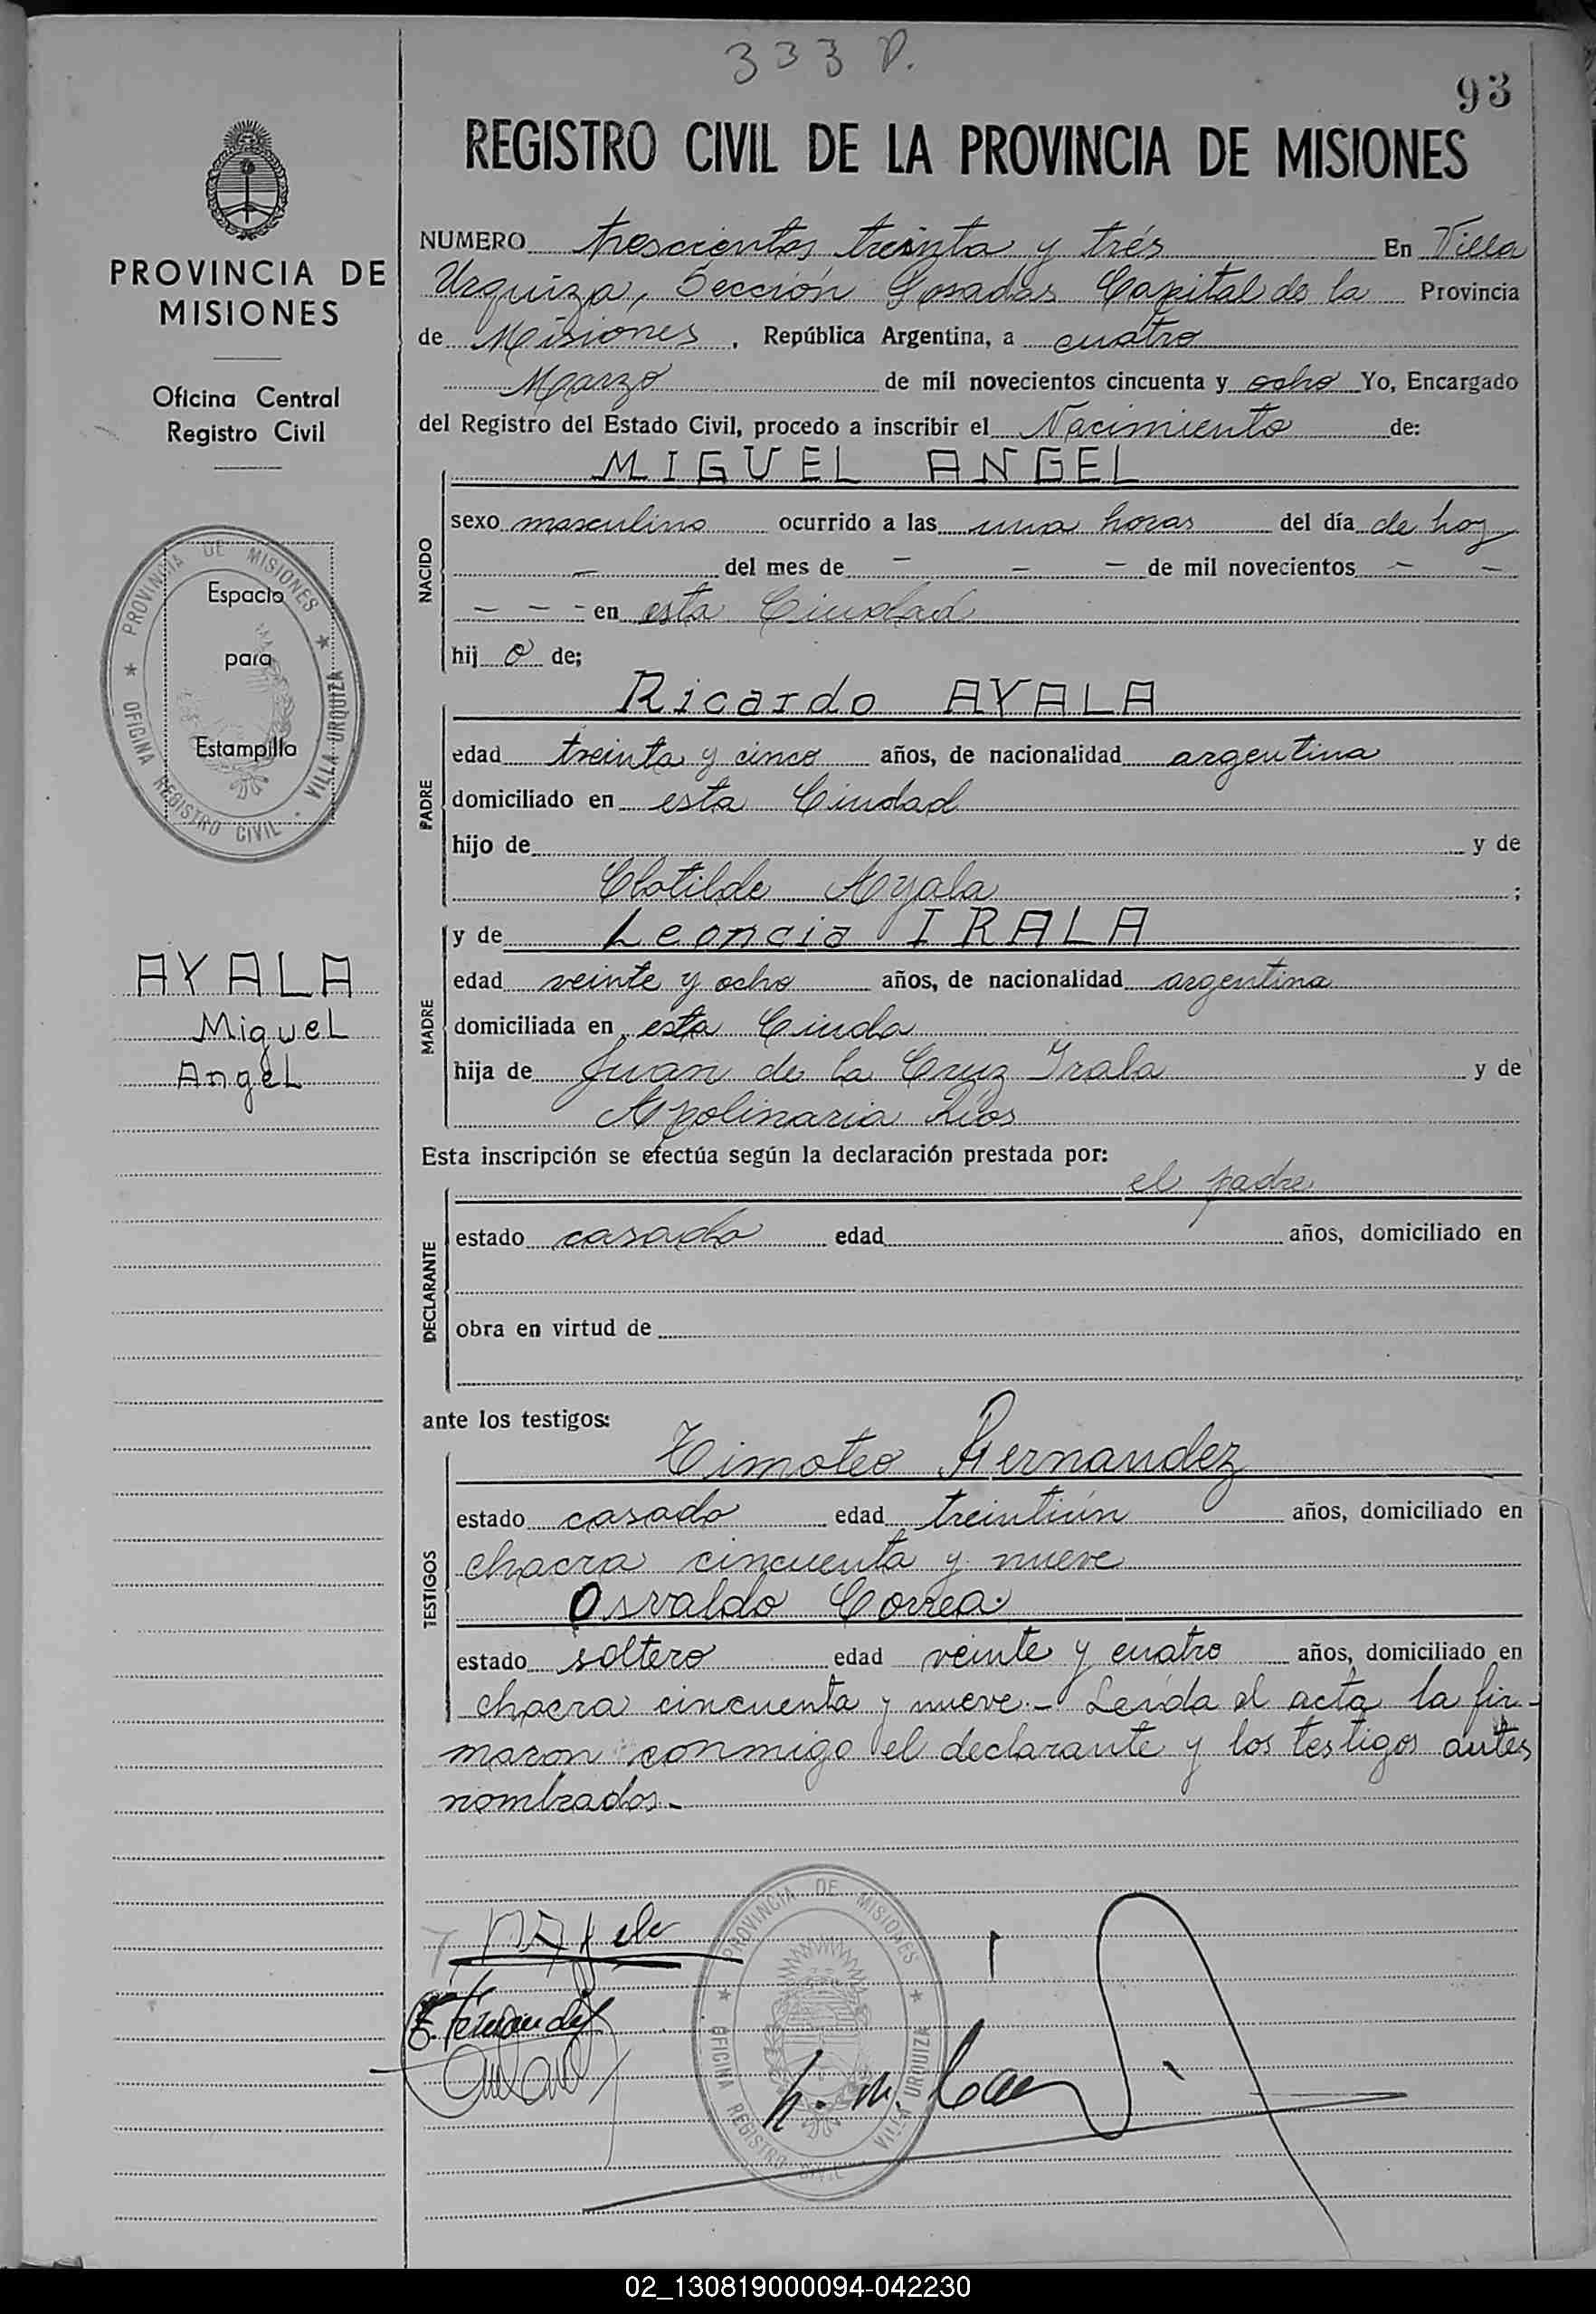 333 P.
93
REGISTRO CIVIL DE LA PROVINCIA DE MISIONES
PROVINCIA DE
MISIONES
Oficina Central
Registro Civil
PROVINCIA DE MISIONES
OFICINA REGISTRO CIVIL - VILLA URQUIZA
Espacio
para
Estampilla
AYALA
Miguel
Angel
NUMERO trescientos treinta y trés En Villa
Urquiza, Sección Posadas Capital de la Provincia
de Misiones, República Argentina, a cuatro
Marzo de mil novecientos cincuenta y ocho Yo, Encargado
del Registro del Estado Civil, procedo a inscribir el Nacimiento de:
MIGUEL ANGEL
NACIDO
sexo masculino ocurrido a las una horas del día de hoy
- del mes de - - - de mil novecientos - -
- - - en esta Ciudad
hij o de;
Ricardo AYALA
PADRE
edad treinta y cinco años, de nacionalidad argentina
domiciliado en esta Ciudad
hijo de y de
Clotilde Ayala ;
y de Leoncia IRALA
MADRE
edad veinte y ocho años, de nacionalidad argentina
domiciliada en esta Ciuda
hija de Juan de la Cruz Irala y de
Apolinaria Rios
Esta inscripción se efectúa según la declaración prestada por:
el padre
DECLARANTE
estado casado edad años, domiciliado en
obra en virtud de
ante los testigos:
Timoteo Fernandez
TESTIGOS
estado casado edad treintiún años, domiciliado en
chacra cincuenta y nueve
Osvaldo Correa.
estado soltero edad veinte y cuatro años, domiciliado en
chacra cincuenta y nueve.- Leída el acta la fir-
maron conmigo el declarante y los testigos antes
nombrados.-
T. Fernandez
PROVINCIA DE MISIONES
OFICINA REGISTRO CIVIL VILLA URQUIZA
02_130819000094-042230